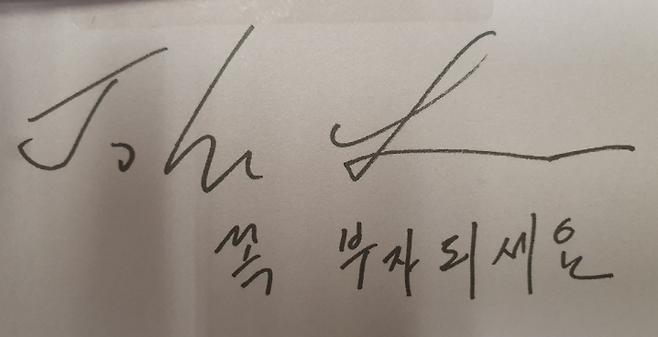 John L
쏙 부자되세요